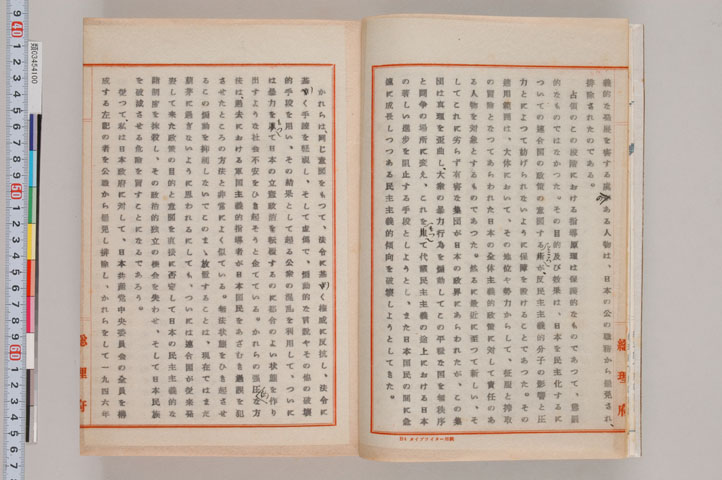 義的な発展を害する虞のある人物は、日本の公の職務から罷免され、
排除されたのである。
占領のこの段階における指導原理は保護的なものであつて、懲罰
的なものではなかつた。その目的及び効果は、日本を民主化するに
ついての連合国の政策の意図するところが、反民主主義的分子の影響と圧
力とによつて妨げられないように保障を設けることであつた。その
適用範囲は、大体において、その地位や勢力からして、征服と搾取
の冒険となつてあらわれた日本の全体主義的政策に対して責任のあ
る人物を対象とするものであつた。然るに最近に至つて新しい、そ
してこれに劣らず有害な集団が日本の政界にあらわれたが、この集
団は真理を歪曲し、大衆の暴力行為を煽動してこの平穏な国を無秩序
と闘争の場所に変え、これをもつて代議民主主義の途上における日本
の著しい進歩を阻止する手段としようとし、また日本国民の間に急
速に成長しつつある民主主義的傾向を破壊しようとしてきた。
総理府
かれらは、同じ意図をもつて、法令に基ずく権威に反抗し、法令に
基ずく手続を軽視し、そして虚偽で、煽動的な言説やその他の破壊
的手段を用い、その結果として起る公衆の混乱を利用して、ついに
は暴力をもつて日本の立憲政治を転覆するのに都合のよい状態を作り
出すような社会不安をひき起そうと企てている。かれらの強圧的な方
法は、過去における軍国主義的指導者が日本国民をあざむき過誤を犯
させたところの方法と非常によく似ている。無法状態をひき起させ
るこの煽動を抑制しないでこのまゝ放置することは、現在ではまだ
萠芽に過ぎないように思われるにしても、ついには連合国が従来発
表して来た政策の目的と意図を直接に否定して日本の民主主義的な
諸制度を抑圧し、その政治的独立の機会を失わせ、そして日本民族
を破滅させる危険を冒すことになるであろう。
従つて私は日本政府に対して、日本共産党中央委員会の全員を構
成する左記の者を公職から罷免し排除し、かれらをして一九四六年
総理府